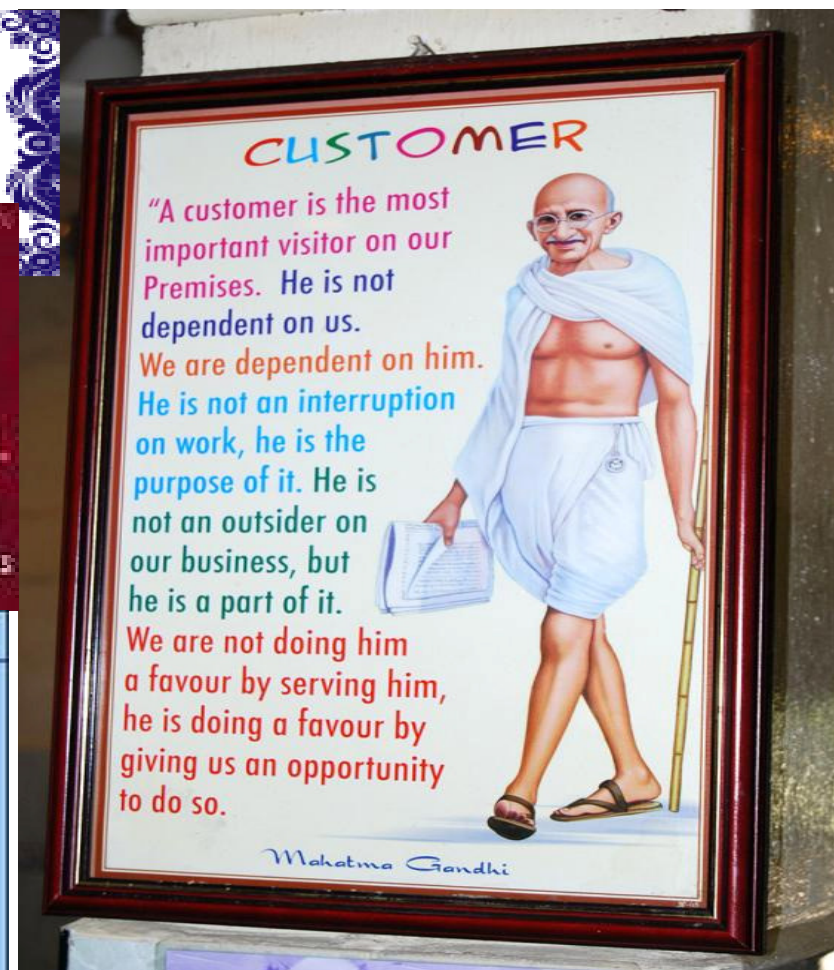 CUSTOMER
“A customer is the most
important visitor on our
Premises. He is not
dependent on us.
We are dependent on him.
He is not an interruption
on work, he is the
purpose of it. He is
not an outsider on
our business, but
he is a part of it.
We are not doing him
a favour by serving him,
he is doing a favour by
giving us an opportunity
to do so.
Mahatma Gandhi